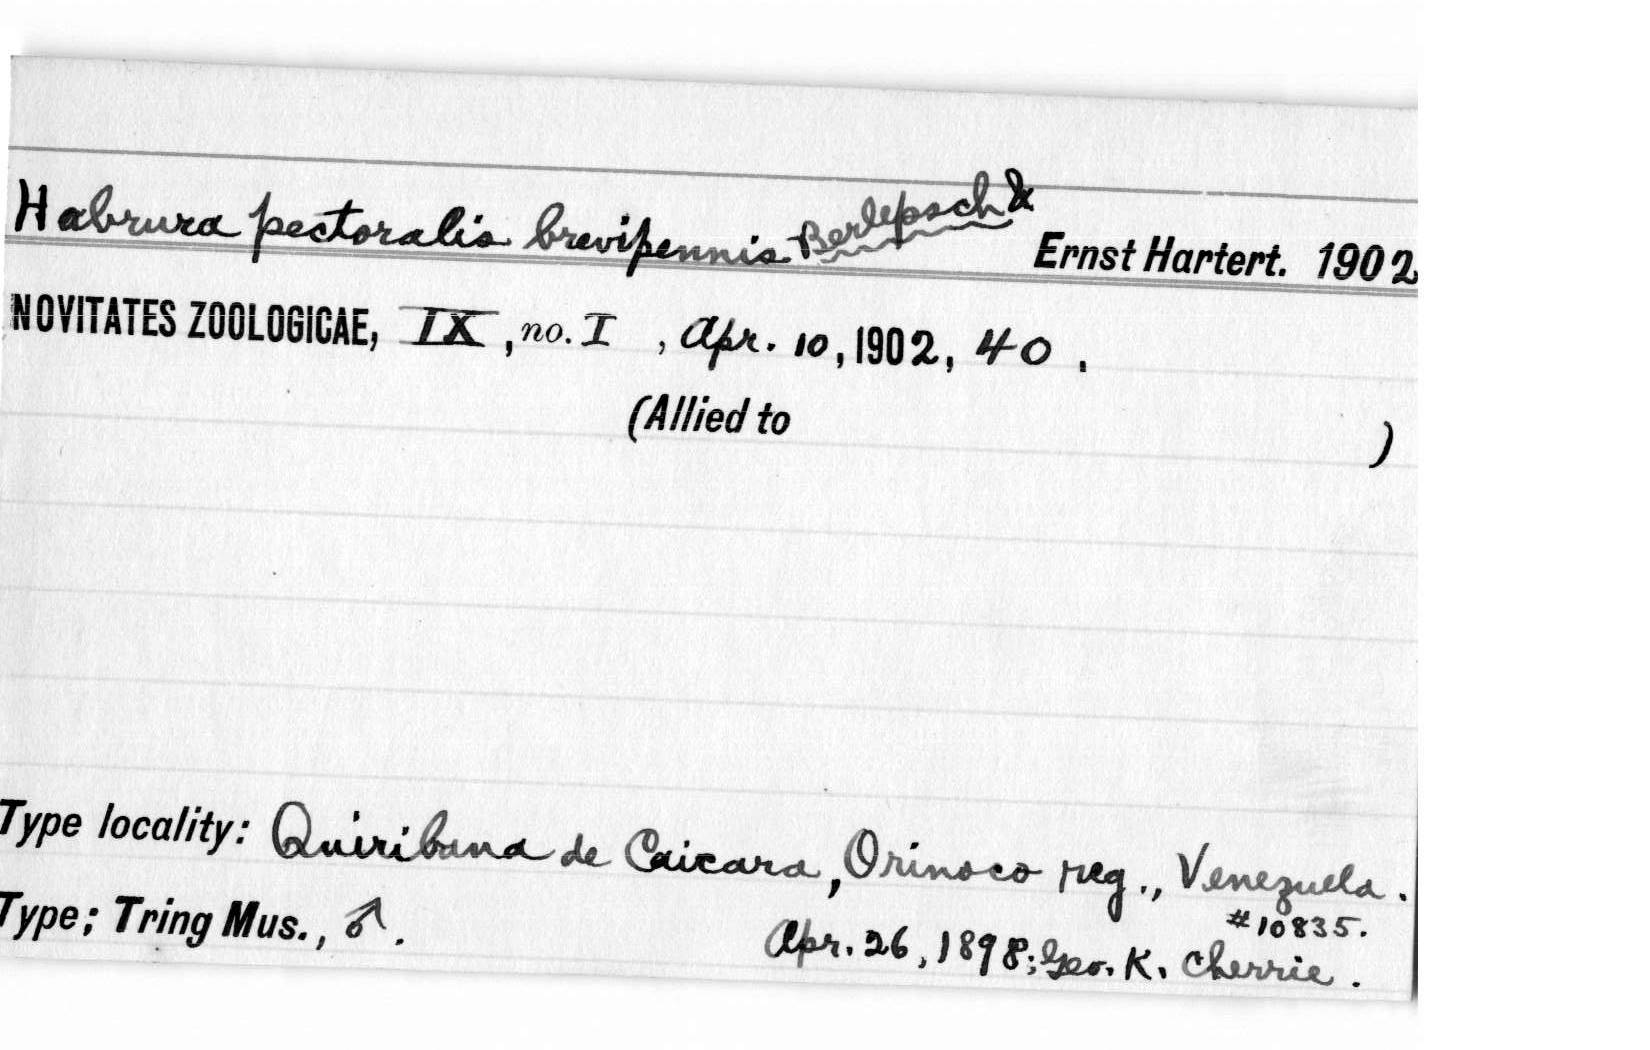 Habrura pectoralis brevipennis Berlepsch & Ernst Hartert. 1902
NOVITATES ZOOLOGICAE, IX, no. I, Apr. 10, 1902, 40.
(Allied to )
Type locality: Quiribana de Caicara, Orinoco reg., Venezuela.
#10835.
Type; Tring Mus., ♂. Apr. 26, 1898; Geo. K. Cherrie.